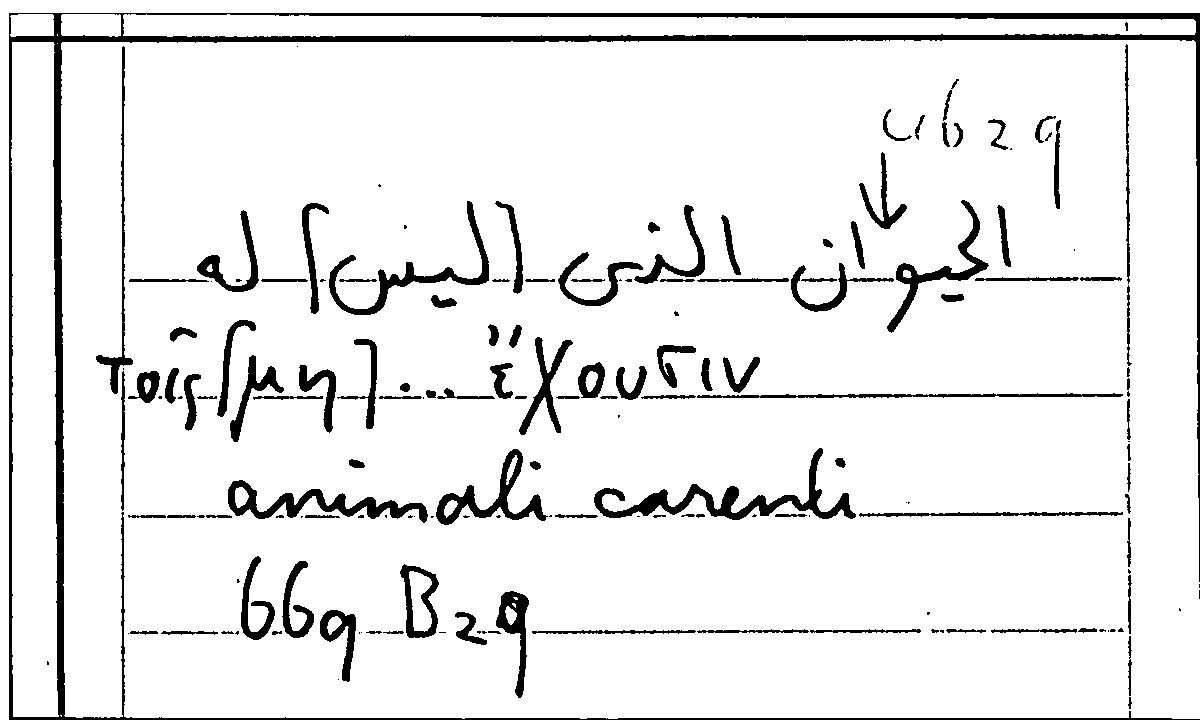 ub29
↓
الحيوان الذى [ليس] له
τοῖς [μη] ... ἔχουσιν
animali carenti
669 B29